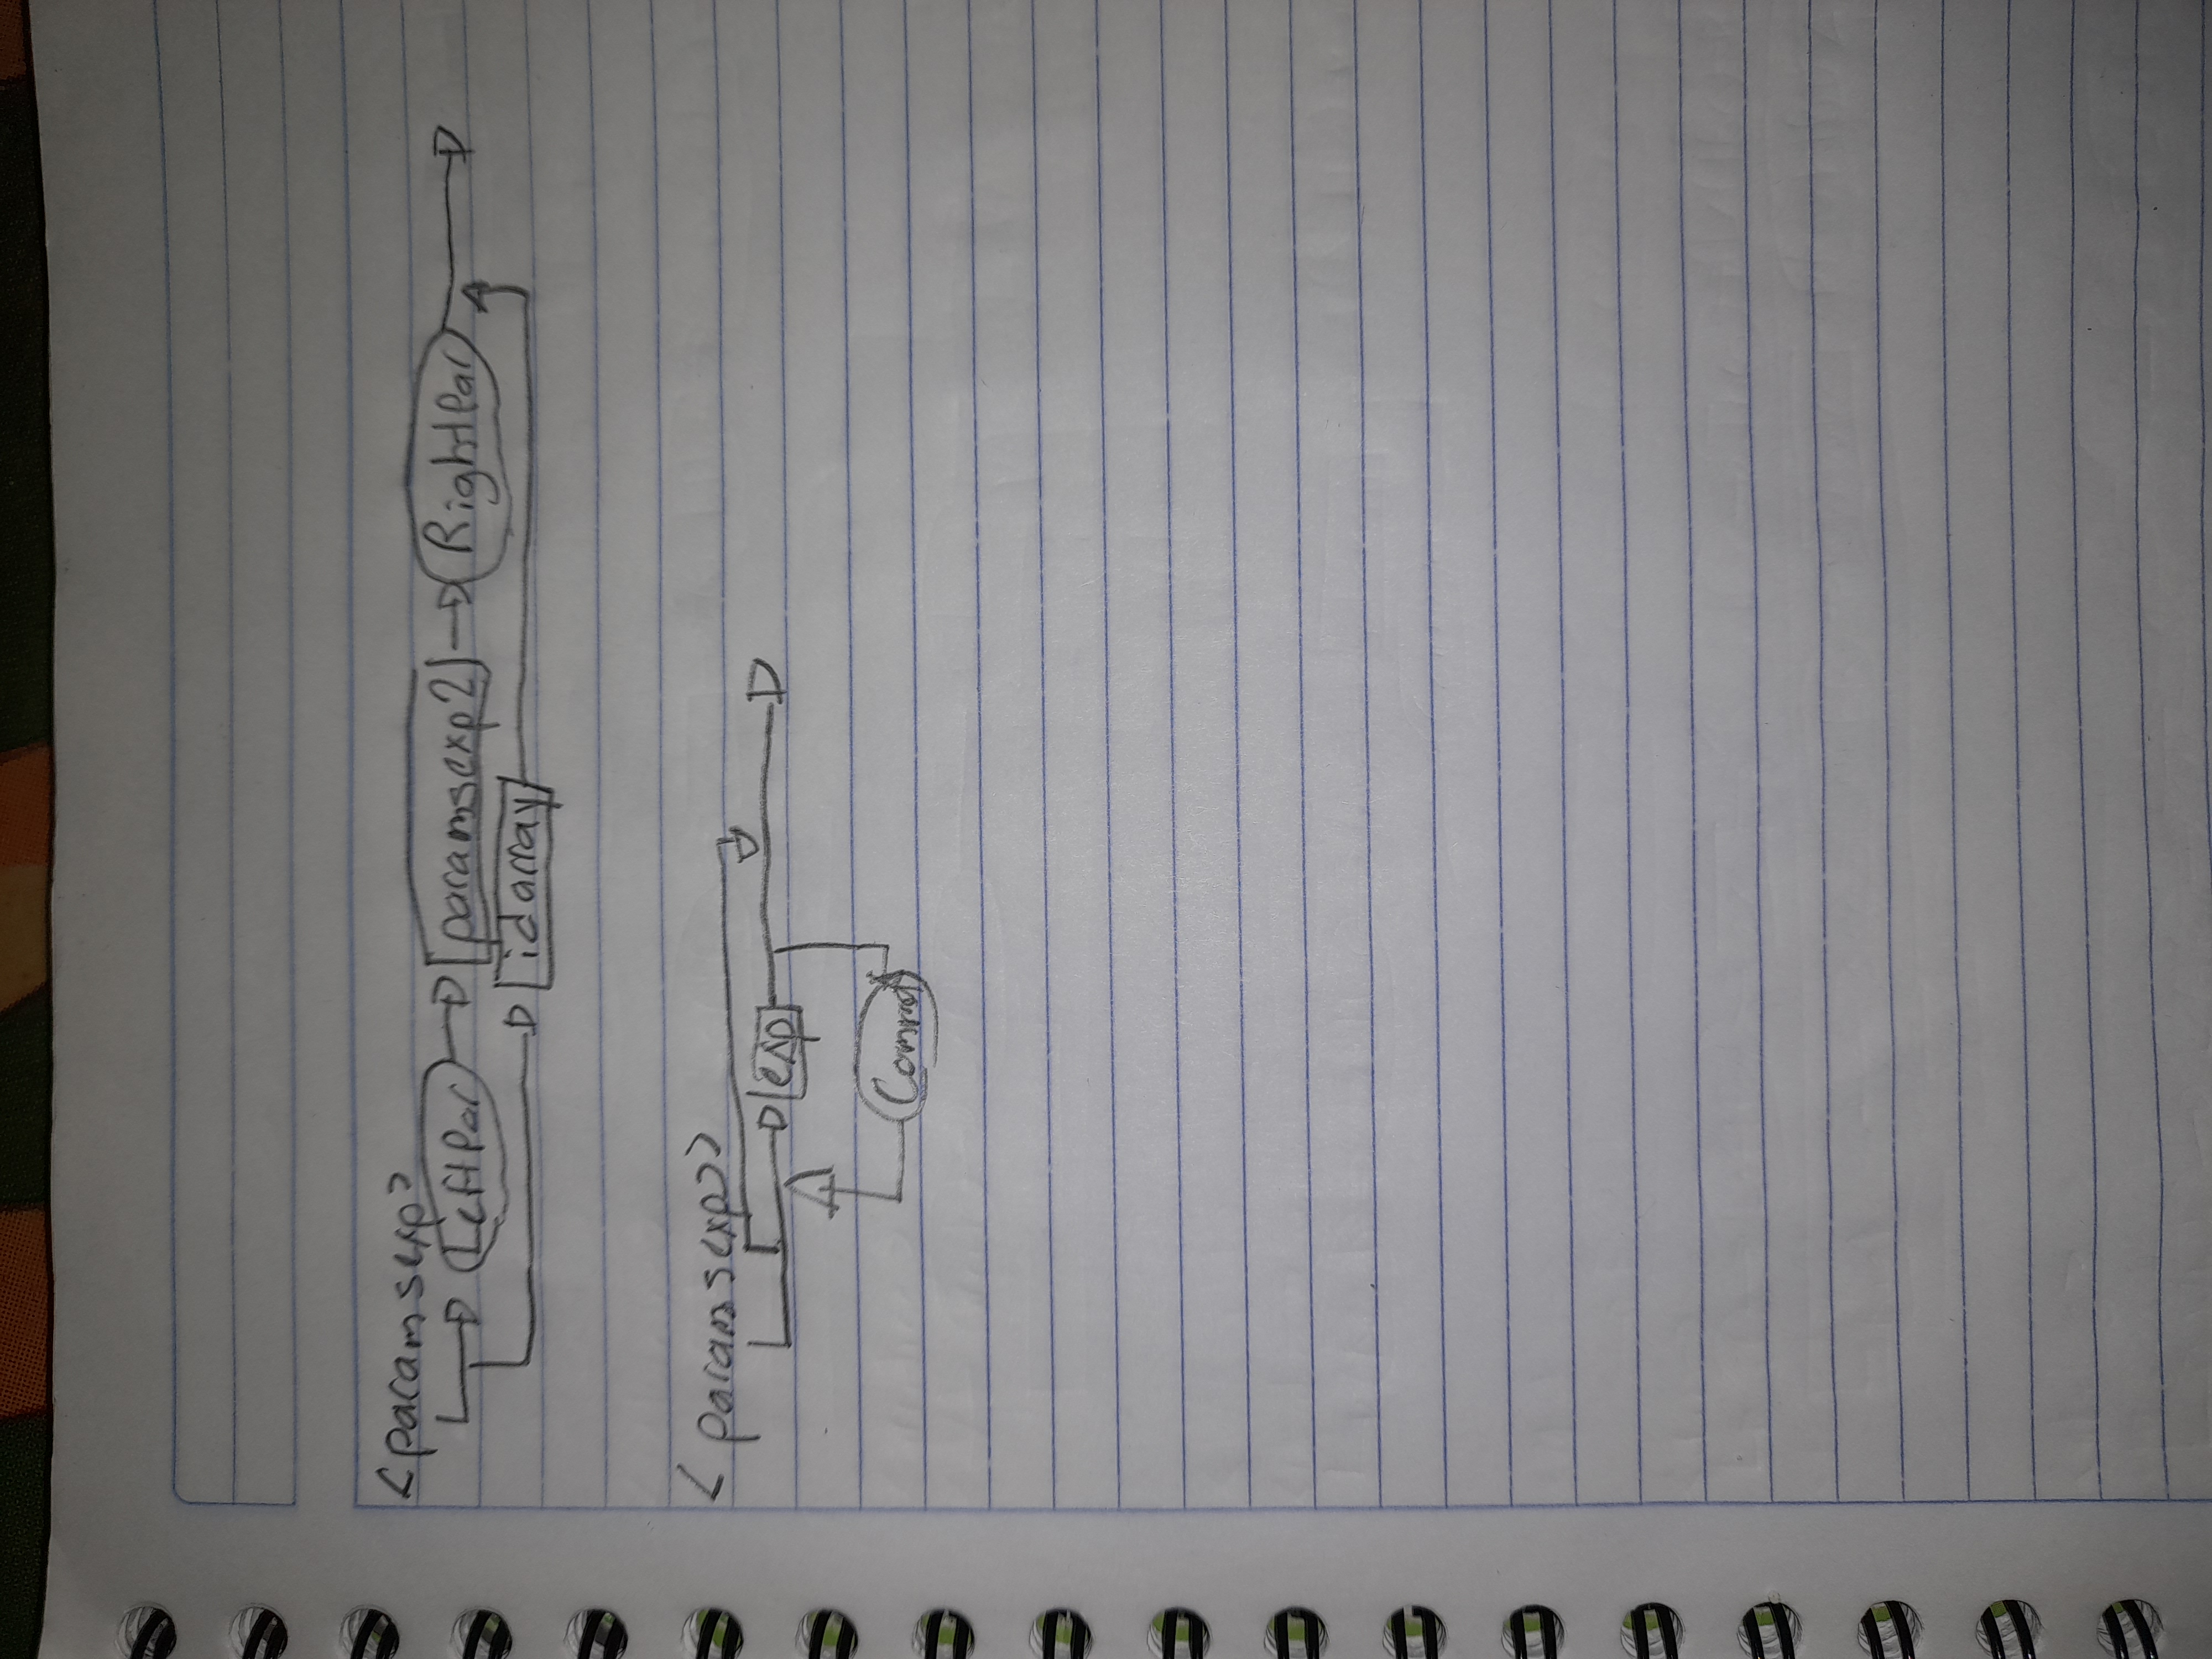 <paramsexp>
LeftPar [paramsexp2] RightPar
idarray
<paramsexp2>
exp
Comma